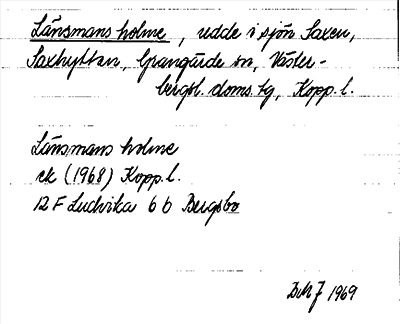 Länsmans holme, udde i sjön Saxen,
Saxhyttan, Grangärde sn, Väster-
bergsl. doms. tg, Kopp. l.
Länsmans holme
ek (1968) Kopp. l.
12 F Ludvika 6 b Bergsbo
1969